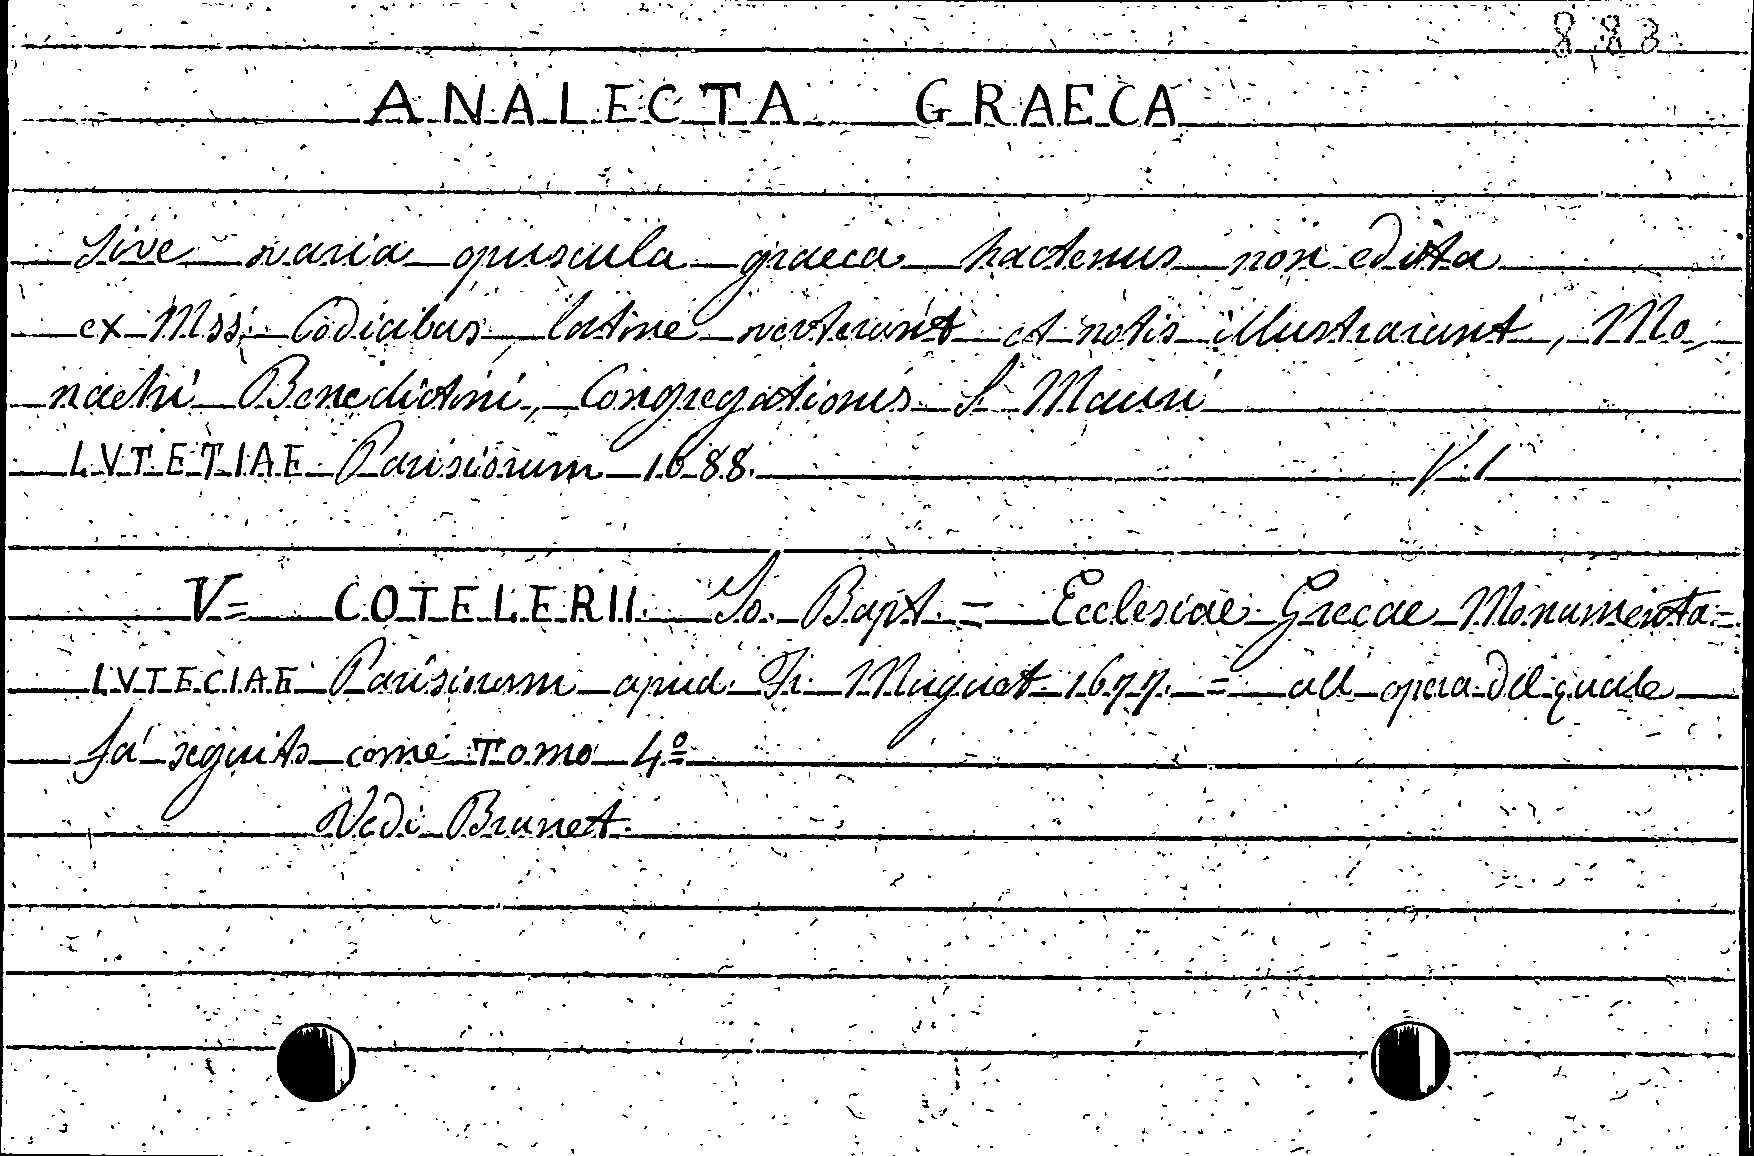 883
ANALECTA GRAECA
Sive varia opuscula graeca hactenus non edita
ex Mss. Codicibus, latine verterunt et notis illustrarunt, Mo,
nachi Benedictini, Congregationis S. Mauri
LVTETIAE Parisiorum 1688. V. 1
V= COTELERII. Jo. Bapt. = Ecclesiae Grecae Monumenta=
LVTECIAE Parisiorum apud. Fr. Muguet. 1677. = all opera del quale
fa seguito come TOMO 4º
Vedi Brunet.